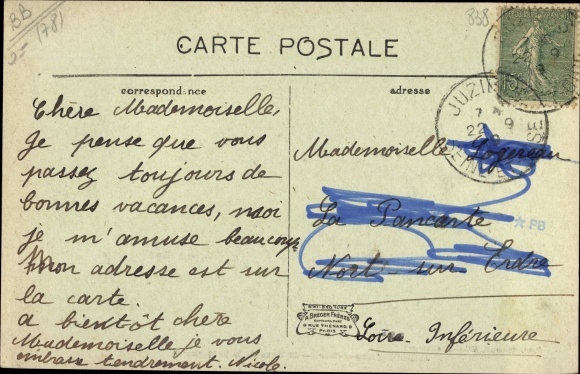 BB
(78)
838
CARTE POSTALE
correspondance
adresse
Chère Mademoiselle,
Je pense que vous
passez toujours de
bonnes vacances, moi
je m'amuse beaucoup
mon adresse est sur
la carte.
a bientôt chère
Mademoiselle je vous
embrasse tendrement. Nicole.
JUZIERS
7 *
22 9
SEINE ET OISE
15
Mademoiselle
La Pancarte
Nort - sur - Erdre
Loire Inférieure
*PB
BREGER FRÈRES
9 RUE THÉNARD 9
PARIS